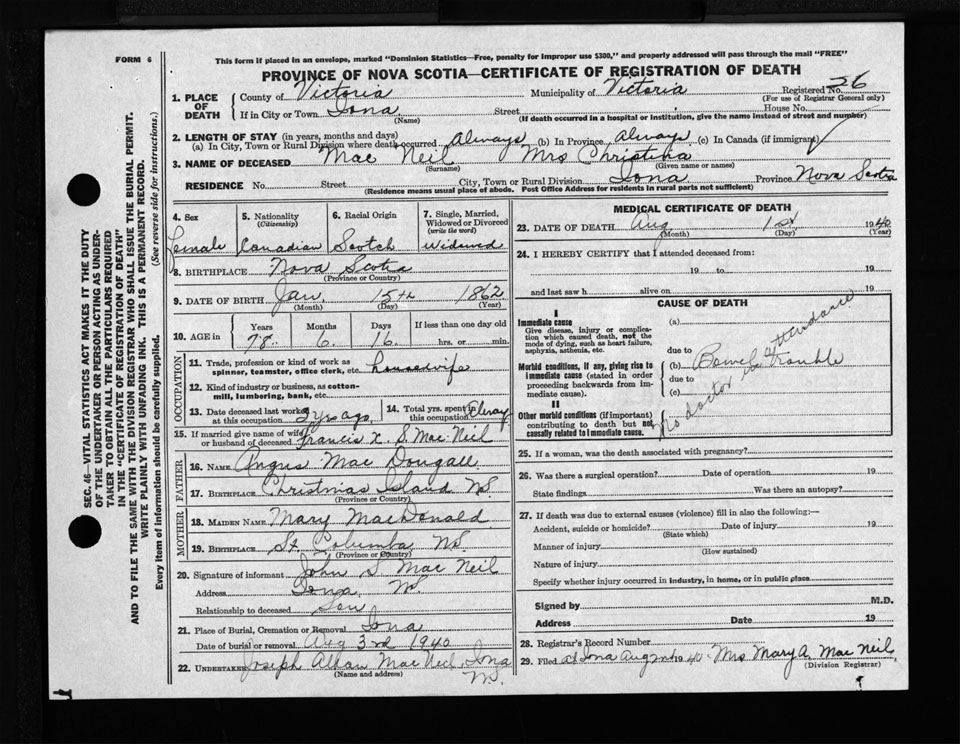 FORM 6
This form if placed in an envelope, marked "Dominion Statistics—Free, penalty for improper use $300," and properly addressed will pass through the mail "FREE"
PROVINCE OF NOVA SCOTIA—CERTIFICATE OF REGISTRATION OF DEATH
1. PLACE OF DEATH County of Victoria Municipality of Victoria Registered No. 26
(For use of Registrar General only)
If in City or Town Iona (Name) Street House No.
(If death occurred in a hospital or institution, give the name instead of street and number)
2. LENGTH OF STAY (in years, months and days)
(a) In City, Town or Rural Division where death occurred Always (b) In Province Always (c) In Canada (if immigrant)
3. NAME OF DECEASED Mac Neil Mrs Christina
(Surname) (Given name or names)
RESIDENCE No. Street City, Town or Rural Division Iona Province Nova Scotia
(Residence means usual place of abode. Post Office Address for residents in rural parts not sufficient)
4. Sex Female
5. Nationality (Citizenship) Canadian
6. Racial Origin Scotch
7. Single, Married, Widowed or Divorced (write the word) Widowed
8. BIRTHPLACE Nova Scotia
(Province or Country)
9. DATE OF BIRTH Jan 15th 1862
(Month) (Day) (Year)
10. AGE in Years 78 Months 6 Days 16 If less than one day old hrs. or min.
OCCUPATION
11. Trade, profession or kind of work as spinner, teamster, office clerk, etc. housewife
12. Kind of industry or business, as cotton-mill, lumbering, bank, etc.
13. Date deceased last worked at this occupation 3 yrs ago
14. Total yrs. spent in this occupation
15. If married give name of wife or husband of deceased Francis X. S. Mac Neil
FATHER
16. NAME Angus Mac Dougall
17. BIRTHPLACE Christmas Island NS
(Province or Country)
MOTHER
18. MAIDEN NAME Mary MacDonald
19. BIRTHPLACE St Columba NS
(Province or Country)
20. Signature of informant John S. Mac Neil
Address Iona NS
Relationship to deceased Son
21. Place of Burial, Cremation or Removal Iona
Date of burial or removal Aug 3rd 1940
22. UNDERTAKER Joseph Allan Mac Neil, Iona NS
(Name and address)
MEDICAL CERTIFICATE OF DEATH
23. DATE OF DEATH Aug 1st 1940
(Month) (Day) (Year)
24. I HEREBY CERTIFY that I attended deceased from:
19 to 19
and last saw h alive on 19
CAUSE OF DEATH
I
Immediate cause
Give disease, injury or complication which caused death, not the mode of dying, such as heart failure, asphyxia, asthenia, etc.
(a)
due to
Morbid conditions, if any, giving rise to immediate cause (stated in order proceeding backwards from immediate cause).
(b) Bowel trouble
due to
(c)
no doctor in attendance
II
Other morbid conditions (if important) contributing to death but not causally related to immediate cause.
25. If a woman, was the death associated with pregnancy?
26. Was there a surgical operation? Date of operation 19
State findings Was there an autopsy?
27. If death was due to external causes (violence) fill in also the following:—
Accident, suicide or homicide? Date of injury 19
(State which)
Manner of injury
(How sustained)
Nature of injury
Specify whether injury occurred in industry, in home, or in public place
Signed by M.D.
Address Date 19
28. Registrar's Record Number
29. Filed at Iona Aug 2nd 1940 Mrs Mary A. Mac Neil
(Division Registrar)
SEC. 46—VITAL STATISTICS ACT MAKES IT THE DUTY
OF THE UNDERTAKER OR PERSON ACTING AS UNDER-
TAKER TO OBTAIN ALL THE PARTICULARS REQUIRED
IN THE "CERTIFICATE OF REGISTRATION OF DEATH"
AND TO FILE THE SAME WITH THE DIVISION REGISTRAR WHO SHALL ISSUE THE BURIAL PERMIT.
WRITE PLAINLY WITH UNFADING INK. THIS IS A PERMANENT RECORD.
Every item of information should be carefully supplied. (See reverse side for instructions.)